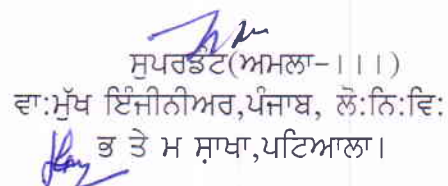 ਸੁਪਰਡੰਟ(ਅਮਲਾ-।।।)
ਵਾ:ਮੁੱਖ ਇੰਜੀਨੀਅਰ,ਪੰਜਾਬ, ਲੋ:ਨਿ:ਵਿ:
ਭ ਤੇ ਮ ਸ਼ਾਖਾ,ਪਟਿਆਲਾ।